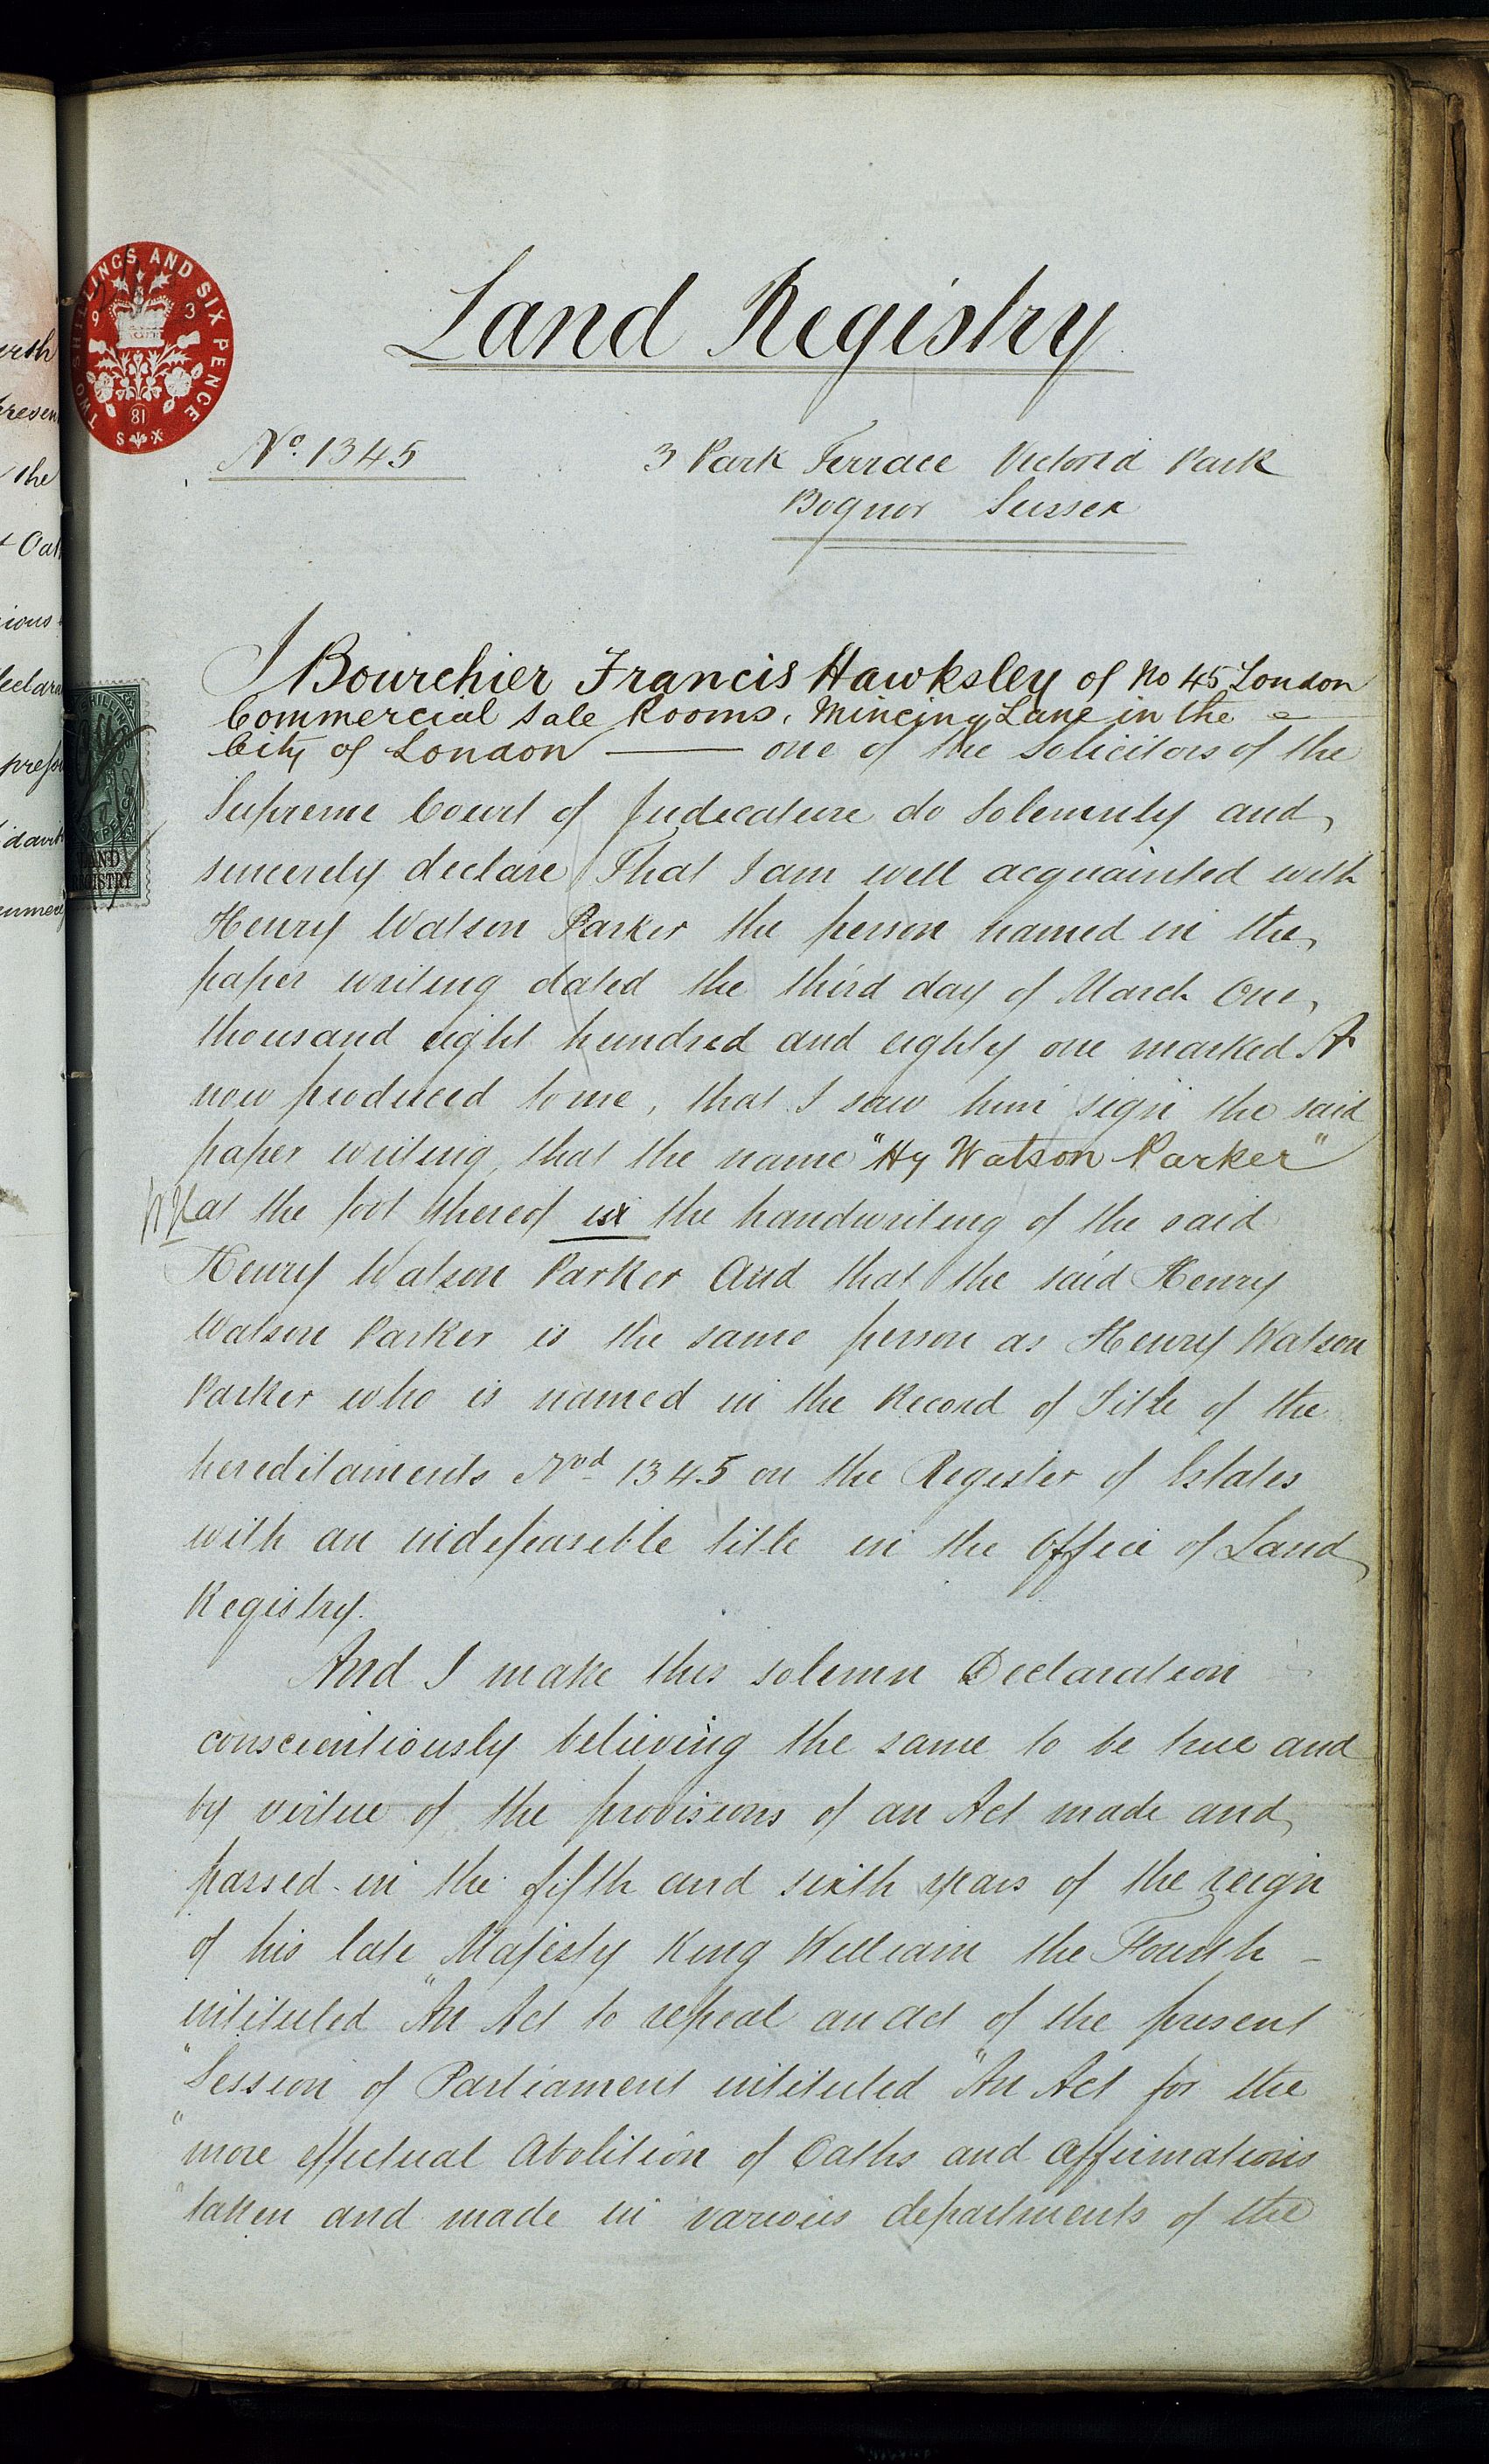 Land Registry
TWO SHILLINGS AND SIX PENCE
9 3
81
No. 1345
3 Park Terrace Victoria Park
Bognor Sussex
I Bourchier Francis Hawksley of No 45 London
Commercial Sale Rooms, Mincing Lane in the
City of London one of the Solicitors of the
Supreme Court of Judicature do solemnly and
sincerely declare That I am well acquainted with
Henry Watson Parker the person named in the
paper writing dated the third day of March One
thousand eight hundred and eighty one marked A
now produced to me, that I saw him sign the said
paper writing, that the name "Hy Watson Parker"
at the foot thereof is the handwriting of the said
Henry Watson Parker And that the said Henry
Watson Parker is the same person as Henry Watson
Parker who is named in the Record of Title of the
hereditaments Nod 1345 on the Register of Estates
with an indefeasible title in the Office of Land
Registry.
And I make this solemn Declaration
conscientiously believing the same to be true and
by virtue of the provisions of an Act made and
passed in the fifth and sixth years of the reign
of his late Majesty King William the Fourth
intituled "An Act to repeal an act of the present
"Session of Parliament intituled "An Act for the
"more effectual Abolition of Oaths and Affirmations
"taken and made in various departments of the
LAND
REGISTRY
the